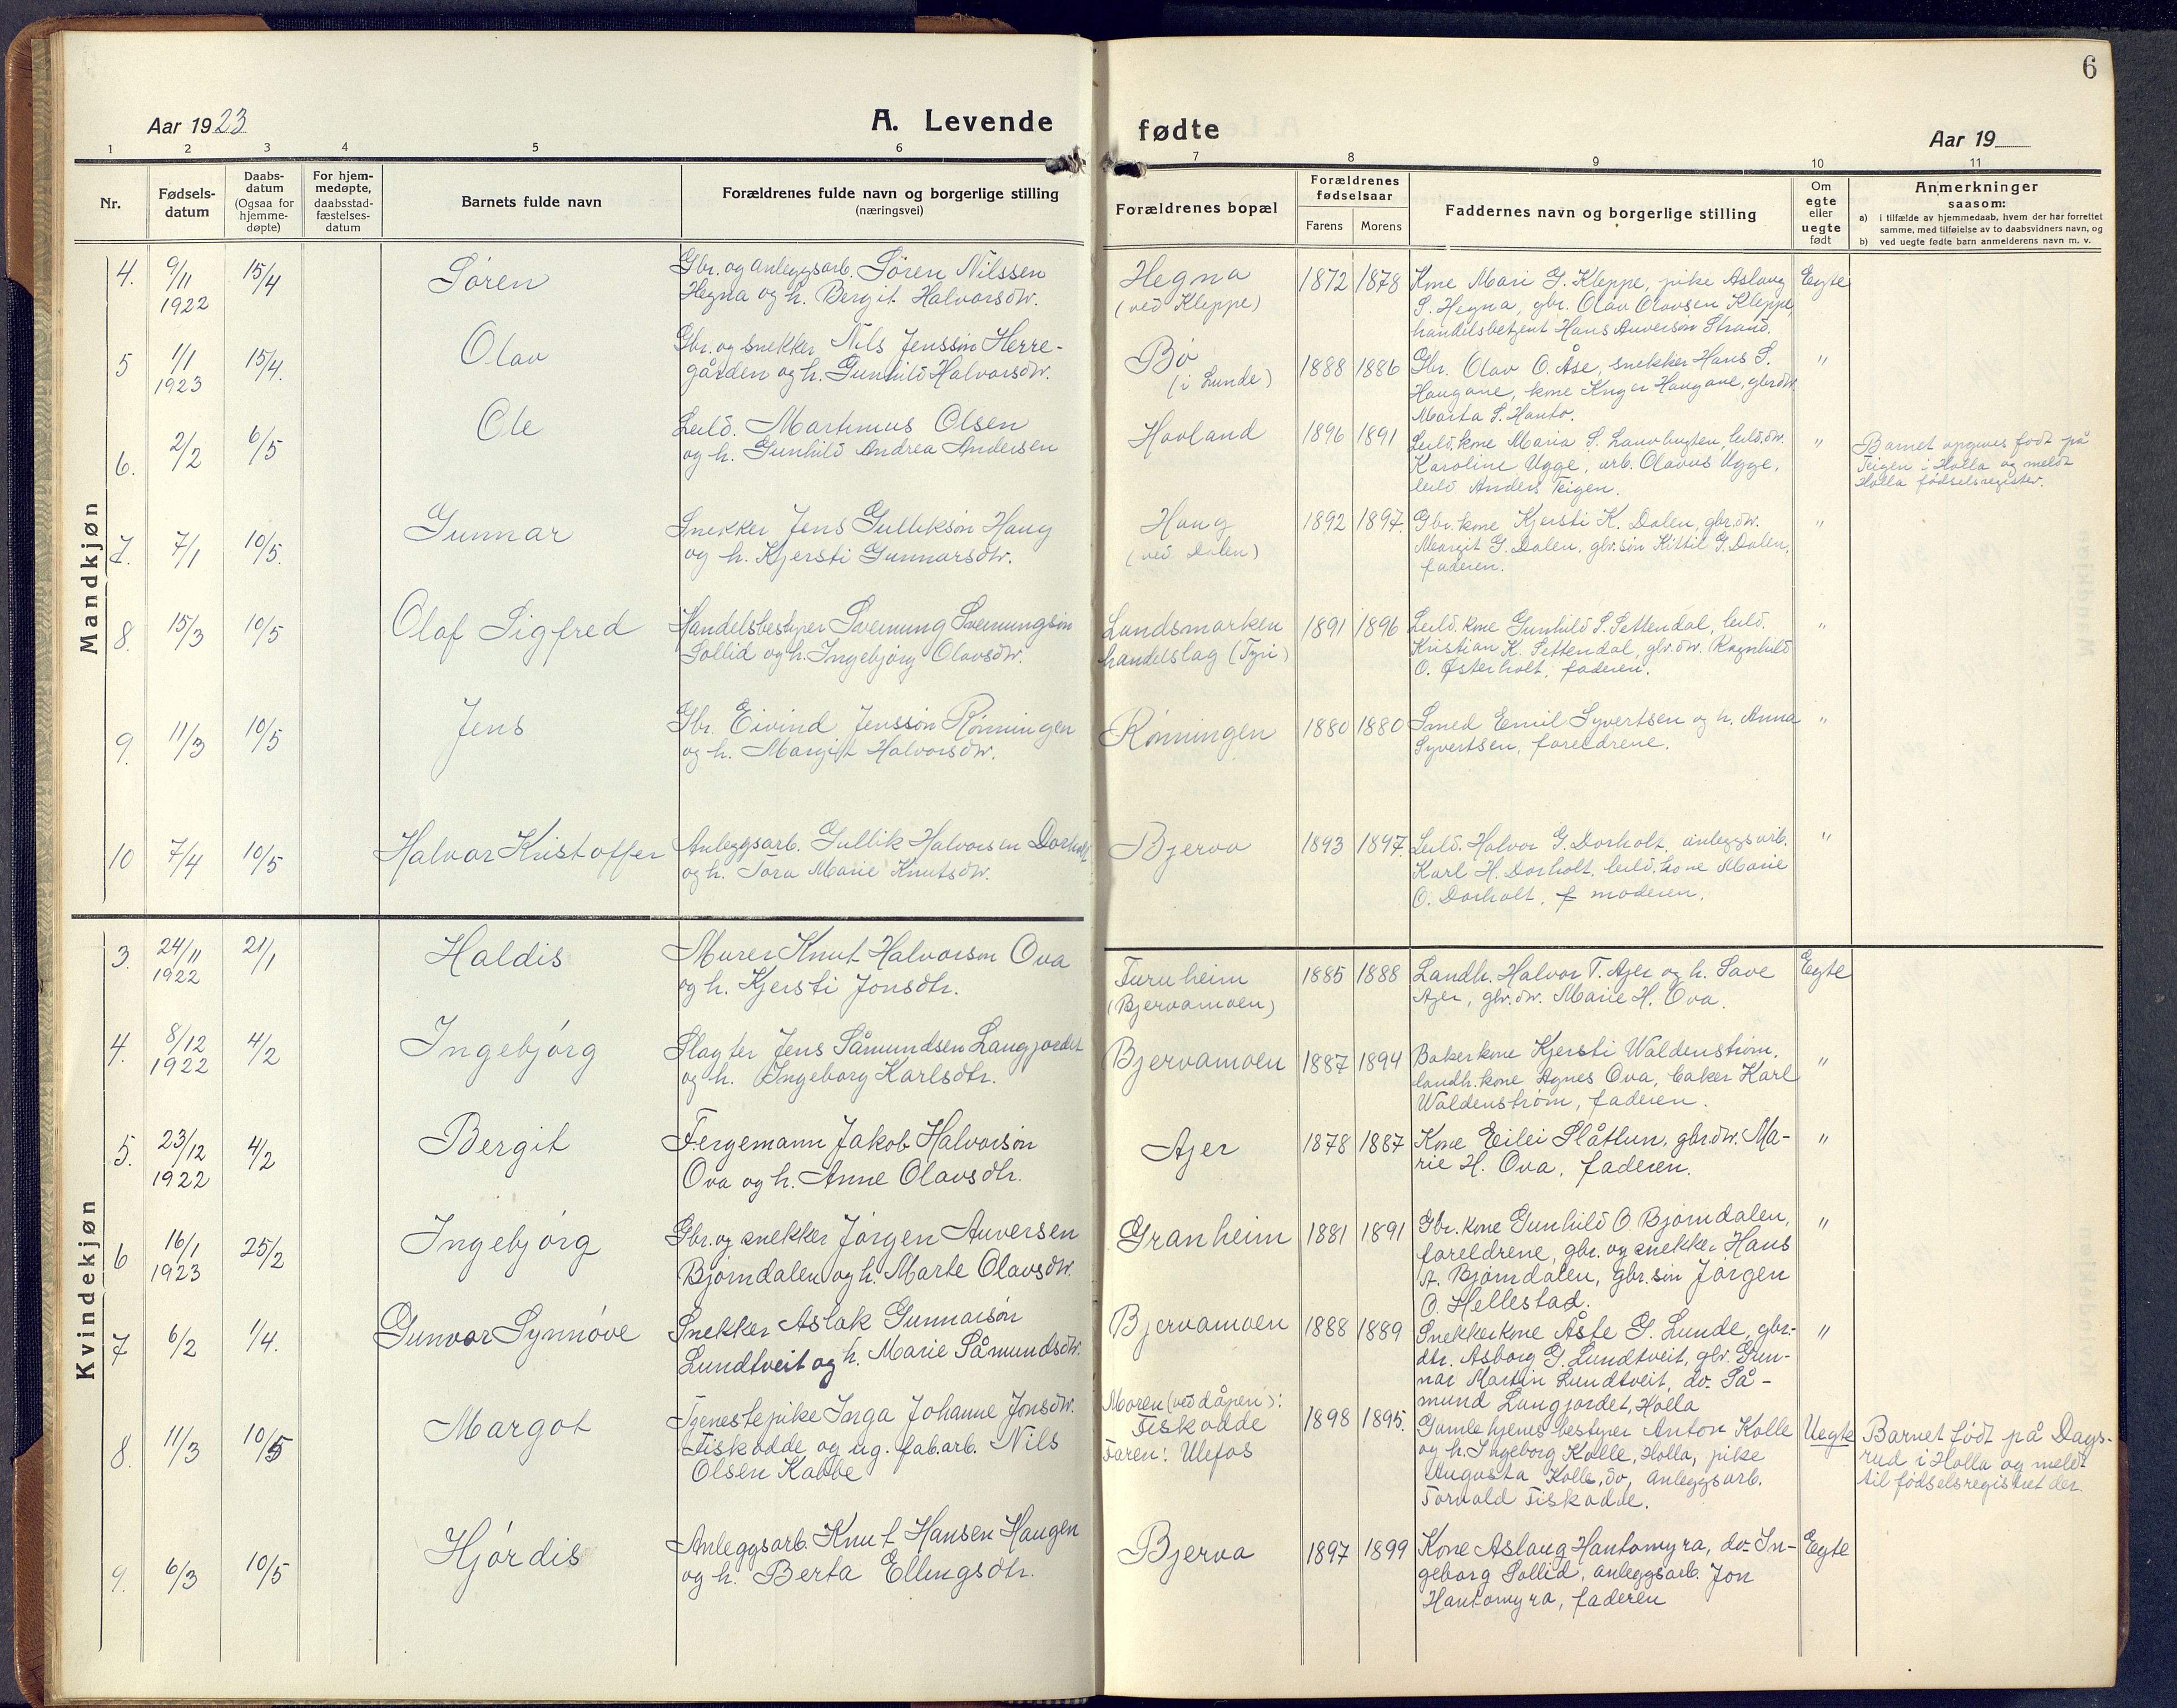 6
Aar 1923
A. Levende
fødte
Aar 19
1 2 3 4 5 6 7 8 9 10 11
Nr.
Fødsels-
datum
Daabs-
datum
(Ogsaa for
hjemme-
døpte)
For hjem-
medøpte,
daabsstad-
fæstelses-
datum
Barnets fulde navn
Forældrenes fulde navn og borgerlige stilling
(næringsvei)
Forældrenes bopæl
Forældrenes
fødselsaar
Farens Morens
Faddernes navn og borgerlige stilling
Om
egte
eller
uegte
født
Anmerkninger
saasom:
a) i tilfælde av hjemmedaab, hvem der har forrettet
samme, med tilføielse av to daabsvidners navn, og
b) ved uegte fødte barn anmelderens navn m. v.
Mandkjøn
4. 9/11 1922 15/4
Søren
Gbr. og anleggsarb. Søren Nilssen
Hegna og h. Bergit Halvorsdtr.
Hegna
(ved Kleppe)
1872 1878
Kone Mari G. Kleppe, pike Aslaug
S. Hegna, gbr. Olav Olavsen Kleppe,
handelsbetjent Hans Auversøn Strand.
Egte
5 1/1 1923 15/4.
Olav
Gbr. og snekker Nils Jenssøn Herre-
gården og h. Gunhild Halvorsdtr.
Bø
(i Lunde)
1888 1886
Gbr. Olav O. Åse, snekker Hans S.
Haugane, kone Haugane, gbrdtr.
Marta S. Hanto.
"
6. 2/2 6/5
Ole
Leild. Martinius Olsen
og h. Gunhild Andrea Andersen
Hovland
1896 1891
Leild. kone Maria S. leild.dtr.
Karoline Ugge, arb. Olavus Ugge,
leild Anders Teigen.
"
Barnet opgives født på
Teigen i Holla og meldt
Holla fødselsregister.
7. 7/1 10/5.
Gunnar
Snekker Jens Gulliksøn Haug
og h. Kjersti Gunnarsdtr.
Haug
(ved Dalen)
1892 1897.
Gbr. kone Kjersti K. Dalen, gbr.dtr.
Margit G. Dalen, gbr.søn Kittil G. Dalen,
faderen.
"
8. 15/3 10/5
Olaf Sigfred
Handelsbestyrer Sveinung Sveinungsøn
Sollid og h. Ingebjørg Olavsdtr.
Landsmarken
handelslag (Tyri)
1891 1896
Leild. kone Gunhild S. Settendal, leild.
Kristian K. Settendal, gbr.dtr. Ragnhild
O. Østerholt, faderen.
"
9. 11/3 10/5
Jens
Gbr. Eivind Jenssøn Rønningen
og h. Margit Halvorsdtr.
Rønningen
1880 1880
Smed Emil Syvertsen og h. Anna
Syvertsen, foreldrene.
"
10 7/4 10/5
Halvor Kristoffer
Anleggsarb. Gullik Halvorsen Dorholt
og h. Tora Marie Knutsdtr.
Bjerva
1893 1897.
Leild. Halvor G. Dorholt, anleggsarb.
Karl H. Dorholt, leild. kone Marie
O. Dorholt, f moderen.
"
Kvindekjøn
3. 24/11 1922 21/1
Haldis
Murer Knut Halvorsøn Ova
og h. Kjersti Jonsdtr.
Furuheim
(Bjervamoen)
1885 1888
Landh. Halvor T. Ajer og h. Save
Ajer, gbr.dtr. Marie H. Ova.
Egte
4. 8/12 1922 4/2
Ingebjørg
Slagter Jens Såmundsen Langjordet
og h. Ingeborg Karlsdtr.
Bjervamoen
1887 1894
Bakerkone Kjersti Waldenstrøm,
landh. kone Agnes Ova, baker Karl
Waldenstrøm, faderen.
"
5. 23/12 1922 4/2
Bergit
Fergemann Jakob Halvorsøn
Ova og h. Anne Olavsdtr.
Ajer
1878 1887
Kone Eilei Slåttun, gbrdtr. Ma-
rie H. Ova, faderen.
"
6 16/1 1923 25/2
Ingebjørg
Gbr. og snekker Jørgen Auversen
Bjørndalen og h. Marte Olavsdtr.
Granheim
1881 1891
Gbr. kone Gunhild O. Bjørndalen,
foreldrene, gbr. og snekker Hans
A. Bjørndalen, gbr. søn Jørgen
O. Hellestad.
"
7 6/2 1/4.
Gunvor Synnøve
Snekker Aslak Gunnarsøn
Lundtveit og h. Marie Såmundsdtr.
Bjervamoen
1888 1889
Snekkerkone Åste G. Lunde, gbr.-
dtr. Asborg G. Lundtveit, gbr. Gun-
nar Martin Lundtveit, do. Så-
mund Langjordet, Holla
"
8. 11/3 10/5
Margot
Tjenestepike Inga Johanne Jonsdtr.
Fiskodde og ug. fab.arb. Nils
Olsen Kabbe
Moren (ved dåpen):
Fiskodde
Faren: Ulefos
1898 1895.
Gamlehjems bestyrer Anton Kolle
og h. Ingeborg Kolle, Holla, pike
Augusta Kolle, do, anleggsarb.
Torvald Fiskodde.
Uegte
Barnet født på Dags-
rud i Holla og meldt
til fødselsregistret der.
9. 6/3 10/5
Hjørdis
Anleggsarb. Knut Hansen Haugen
og h. Berta Ellingsdtr.
Bjerva
1897 1899
Kone Aslaug Hantomyra, do. In-
geborg Sollid, anleggsarb. Jon
Hantomyra, faderen
Egte